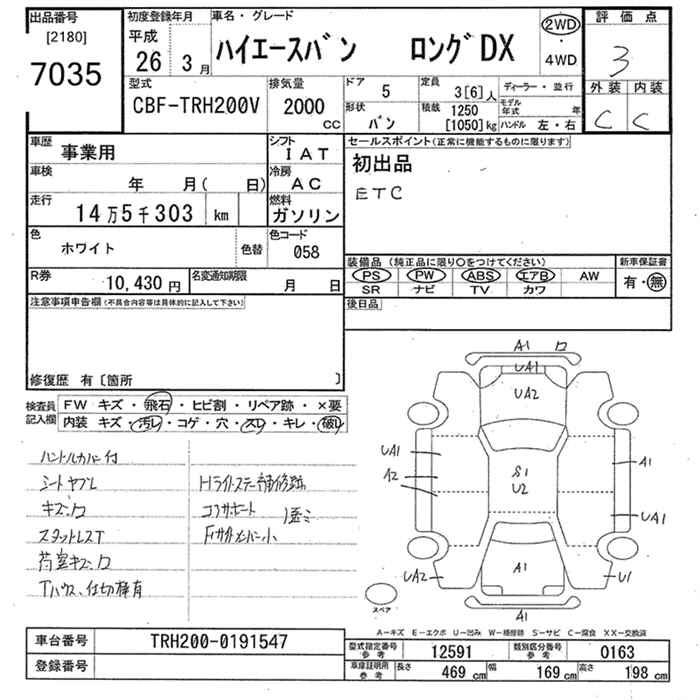 出品番号
[2180]
7035
初度登録年月
平成
26 3月
車名・グレード
ハイエースバン ロングDX
2WD
・
4WD
評価点
3
外装 内装
C C
型式
CBF-TRH200V
排気量
2000
cc
ドア
5
定員
3[6]人
形状
バン
積載 1250
[1050]kg
ディーラー・並行
モデル年式 年
ハンドル 左・右
車歴
事業用
シフト
IAT
車検
年 月( 日)
冷房
AC
走行
14万5千303 km
燃料
ガソリン
色
ホワイト
色替
色コード
058
R券
10,430円
名変通知期限
月 日
セールスポイント(正常に機能するものに限ります)
初出品
ETC
装備品(純正品に限り○をつけてください)
PS PW ABS エアB AW
SR ナビ TV カワ
新車保証書
有・無
後日品
注意事項申告欄(不具合内容等は具体的に記入して下さい)
修復歴 有〔箇所 〕
検査員
記入欄
FW キズ・飛石・ヒビ割・リペア跡・×要
内装 キズ・汚レ・コゲ・穴・スレ・キレ・破レ
ハンドルカバー付
シートヤブレ
キズ、凹
スタットレスT
荷室キズ、凹
Tハウス、仕切棒有
Hライトステー補修跡
コアサポート
Fサイドメンバー小
歪ミ
A1 凹
UA1
UA2
UA1
A2
S1
U2
A1
UA1
UA2
A1
U1
A1
スペア
A-キズ E-エクボ U-凹み W-補修跡 S-サビ C-腐食 XX-交換済
車台番号
TRH200-0191547
登録番号
型式指定番号
参考
12591
類別区分番号
参考
0163
車庫証明用
参考
長さ 469 cm 幅 169 cm 高さ 198 cm